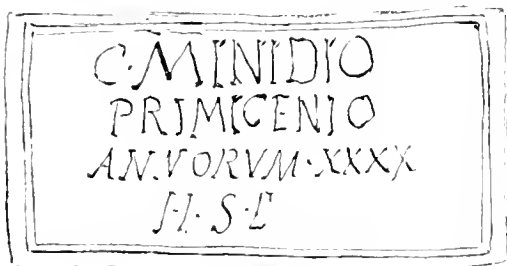 C·MINIDIO
PRIMICENIO
AN·VORVM·XXXX
H·S·E